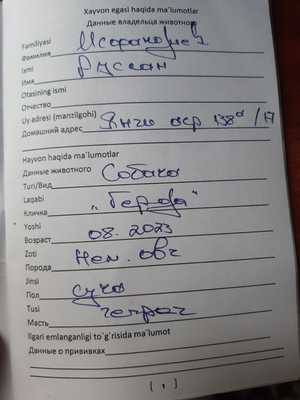 Xayvon egasi haqida ma'lumotlar
Данные владельца животного
Familiyasi
Фамилия
Ismi Руслан
Имя
Otasining ismi
Отчество
Uy adresi (manzilgohi) Янги аср 138а/17
Домашний адрес
Hayvon haqida ma'lumotlar
Данные животного
Turi/Вид Собака
Laqabi
Кличка „Герда"
Yoshi
Возраст 08.2023
Zoti
Порода Нем. овч
Jinsi
Пол сука
Tusi
Масть чепрач
Ilgari emlanganligi to`g`risida ma'lumot
Данные о прививках
( 1 )